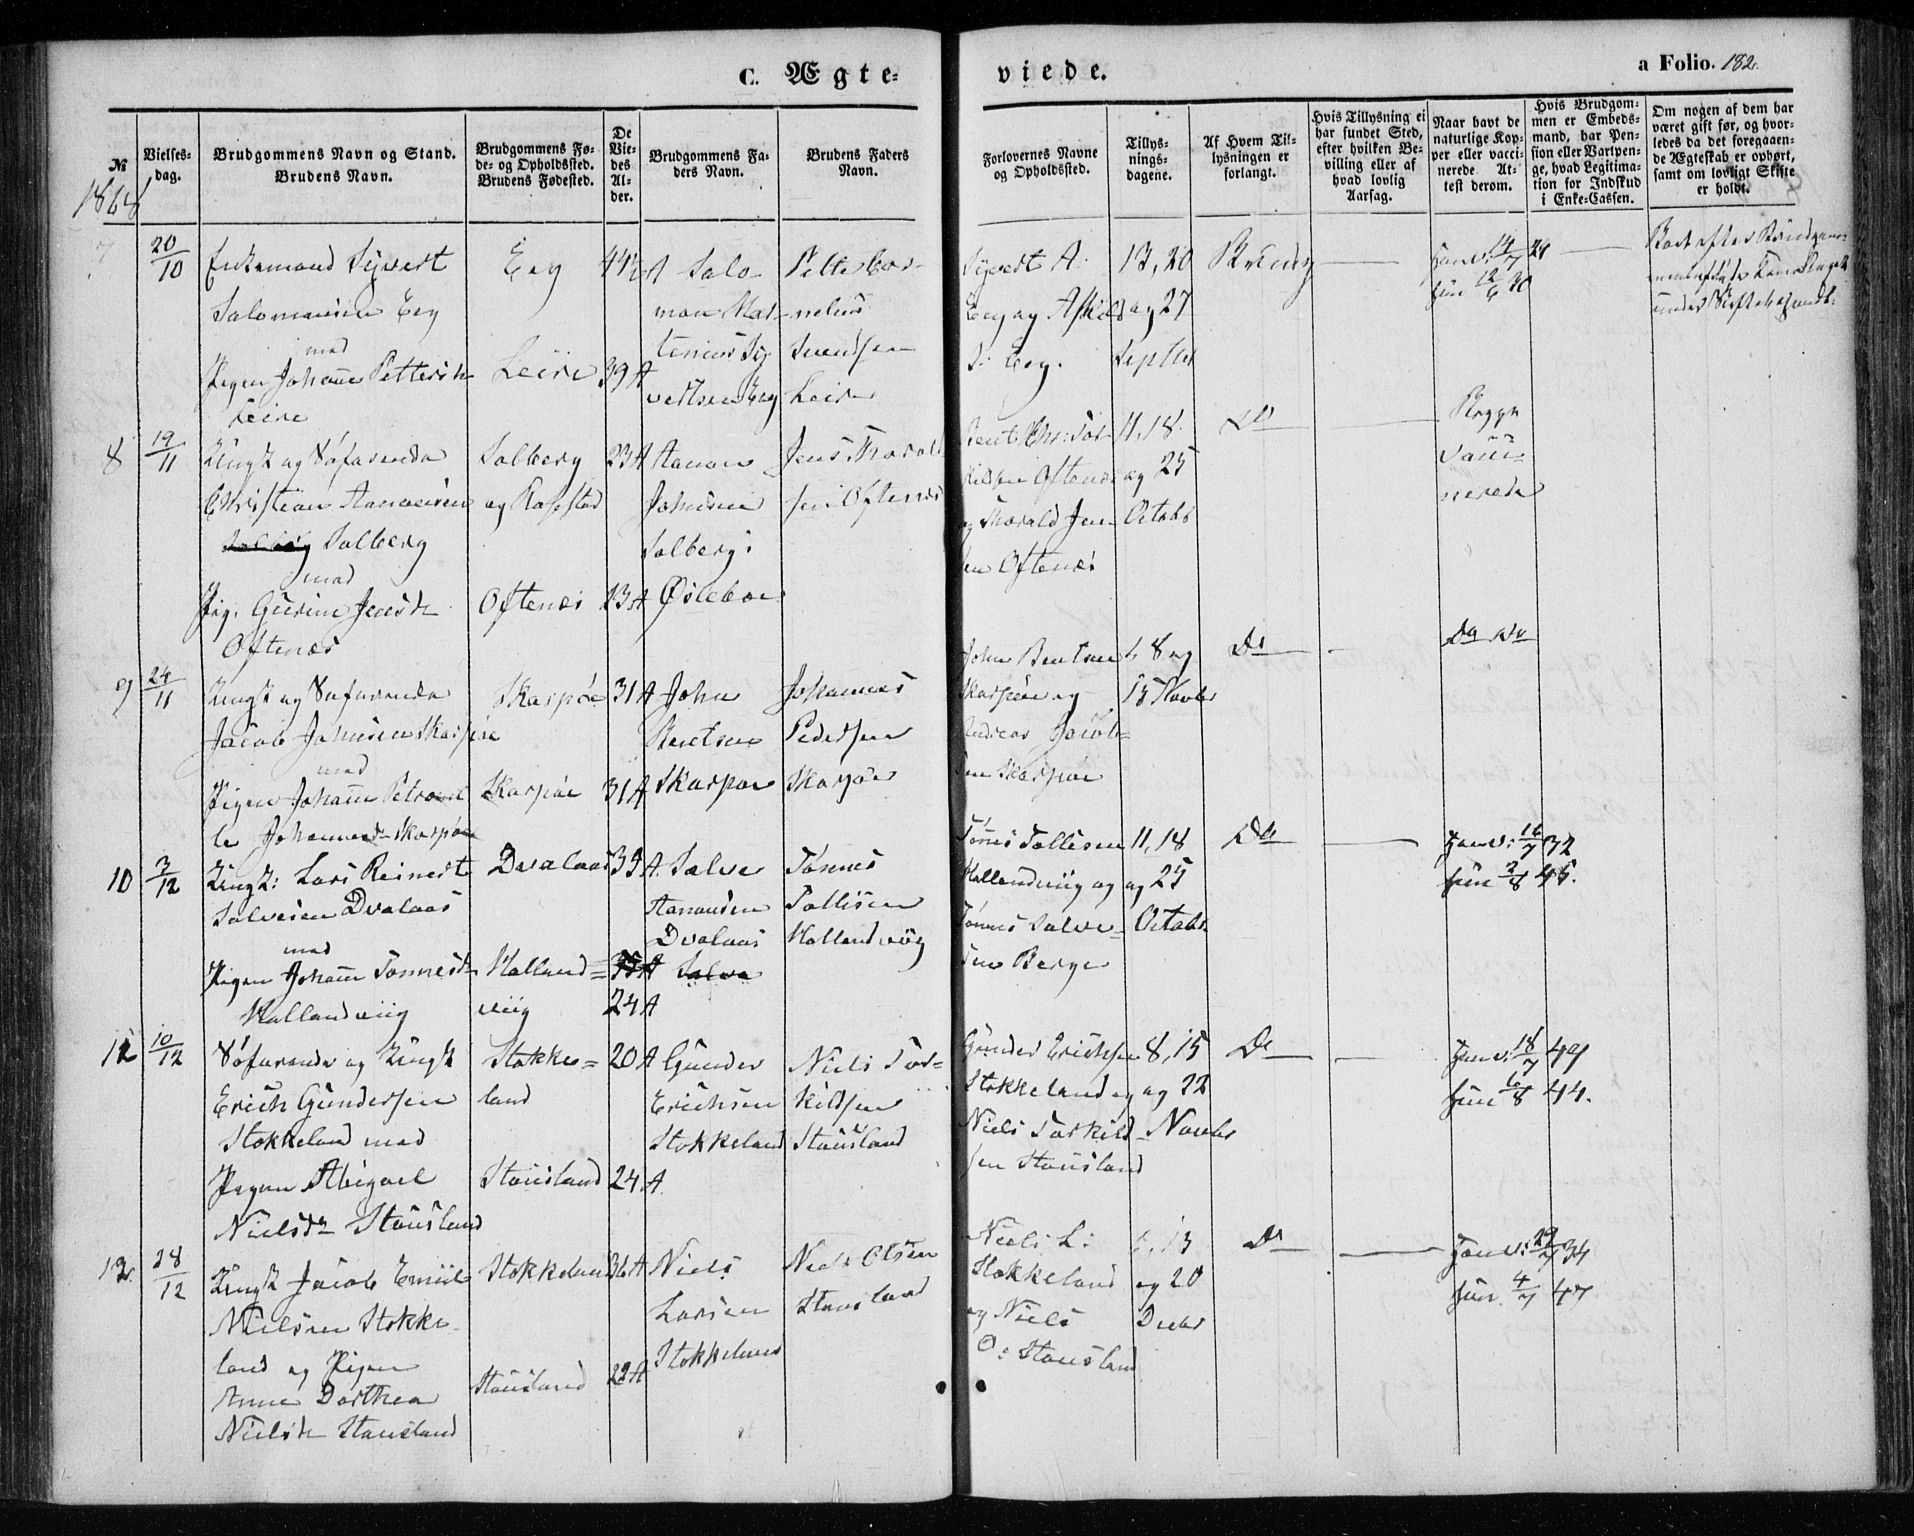 C. Ægte-
viede.
a Folio. 182.
№
Vielses-
dag.
Brudgommens Navn og Stand.
Brudens Navn.
Brudgommens Fø-
de- og Opholdssted.
Brudens Fødested.
De
Vie-
des
Al-
der.
Brudgommens Fa-
ders Navn.
Brudens Faders
Navn.
Forlovernes Navne
og Opholdssted.
Tillys-
nings-
dagene.
Af Hvem Til-
lysningen er
forlangt.
Hvis Tillysning ei
har fundet Sted,
efter hvilken Be-
villing eller af
hvad lovlig
Aarsag.
Naar havt de
naturlige Kop-
per eller vacci-
nerede At-
test derom.
Hvis Brudgom-
men er Embeds-
mand, har Pen-
sion eller Vartpen-
ge, hvad Legitima-
tion for Indskud
i Enke-Cassen.
Om nogen af dem har
været gift før, og hvor-
ledes da det foregaaen-
de Ægteskab er ophørt,
samt om lovligt Skifte
er holdt.
7
20/10
Enkemand Sývert
Salomonsen Eeg
med
Pigen Johanne Pettersdr
Leire
Eeg
Leire
44½ A
39 A
Salo-
mon Mat-
tenius Sy-
vertsen Eeg
Petter Cor-
nelius
Svendsen
Leire
Syvert A:
Eeg og Askild
S: Eeg.
13, 20
og 27
Septbr
Brudg
Han v: 14/7 24
hun 12/6 30
8
19/11
Ungk og Søfarende
Christian Aanonsen
Solberg
med
Pig. Gurine Jensdr
Oftenæs
Solberg
Oftenæs
23 A
23 A
Aanon
Johnsen
Solberg i
Øslebøe
Jens Thorald
sen Oftenæs
Bent Chr: Tor-
kildsen Oftenæs
og Thorald Jen-
sen Oftenæs
11, 18.
og 25
Octobr
Do
Begge
vacci-
nerede
9
24/11
Ungk og Søfarende
Jacob Johnsen Skarpøe
med
Pigen Johanne Petronel
le Johannesdr Skarpøe
Skarpøe
Skarpøe
31 A
31 A
John
Bentsen
Skarpøe
Johannes
Pedersen
Skarpøe
John Bentsen
Skarpøe og
Andreas Jacob-
sen Skarpøe
1, 8 og
15 Novbr
Do
Do Do
10
3/12
Ungk: Lars Reinert
Salvesen Dvalaas
med
Pigen Johanne Tønnesdr
Hallandviig
Dvalaas
Halland-
viig
35 A.
35 A
24 A
Salve
Aanonsen
Dvalaas
Salve
Tønnes
Tollisen
Hallandviig
Tønnes Tollisen
Hallandviig og
Tønnes Salve-
sen Berge
11, 18
og 25
Octobr.
Do
Han v: 16/7 32
hun 2/8 45.
12
10/12
Søfarende og Ungk
Erich Gundersen
Stokkeland med
Pigen Abigael
Nielsdr Stausland
Stokke-
land
Stausland
20 A
24 A.
Gunder
Erichsen
Stokkeland
Niels Tor-
kildsen
Stausland
Gunder Erichsen
Stokkeland og
Niels Torkild-
sen Stausland
8, 15
og 22
Novbr
Do
Han v: 18/7 49
hun 6/8 44.
12.
28/12
Ungk Jacob Emiil
Nielsen Stokke-
land og Pigen
Anne Dorthea
Nielsdr Stausland
Stokkeland
Stausland
36 A
22 A
Niels
Larsen
Stokkeland
Niels Olsen
Stausland
Niels L:
Stokkeland
og Niels
O: Stausland
6, 13
og 20
Decbr
Do
Han v: 29/7 34
hun 4/7 47